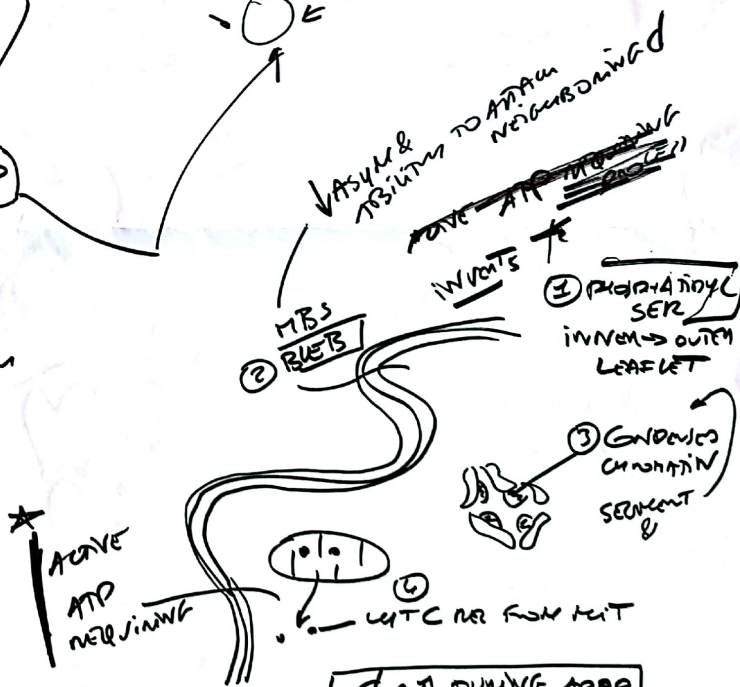 ↓ ASYM &
ABILITIES TO ATTACH
NEIGHBORING
ACTIVE ATP REQUIRING
PROCESS
INVENTS
① PHOSPHATIDYL
SER
INNER → OUTER
LEAFLET
MBS
② BLEB
③ CONDENSED
CHROMATIN
SEGMENT
&
ACTIVE
ATP
REQUIRING
④
CYT C REL FROM MIT
DURING